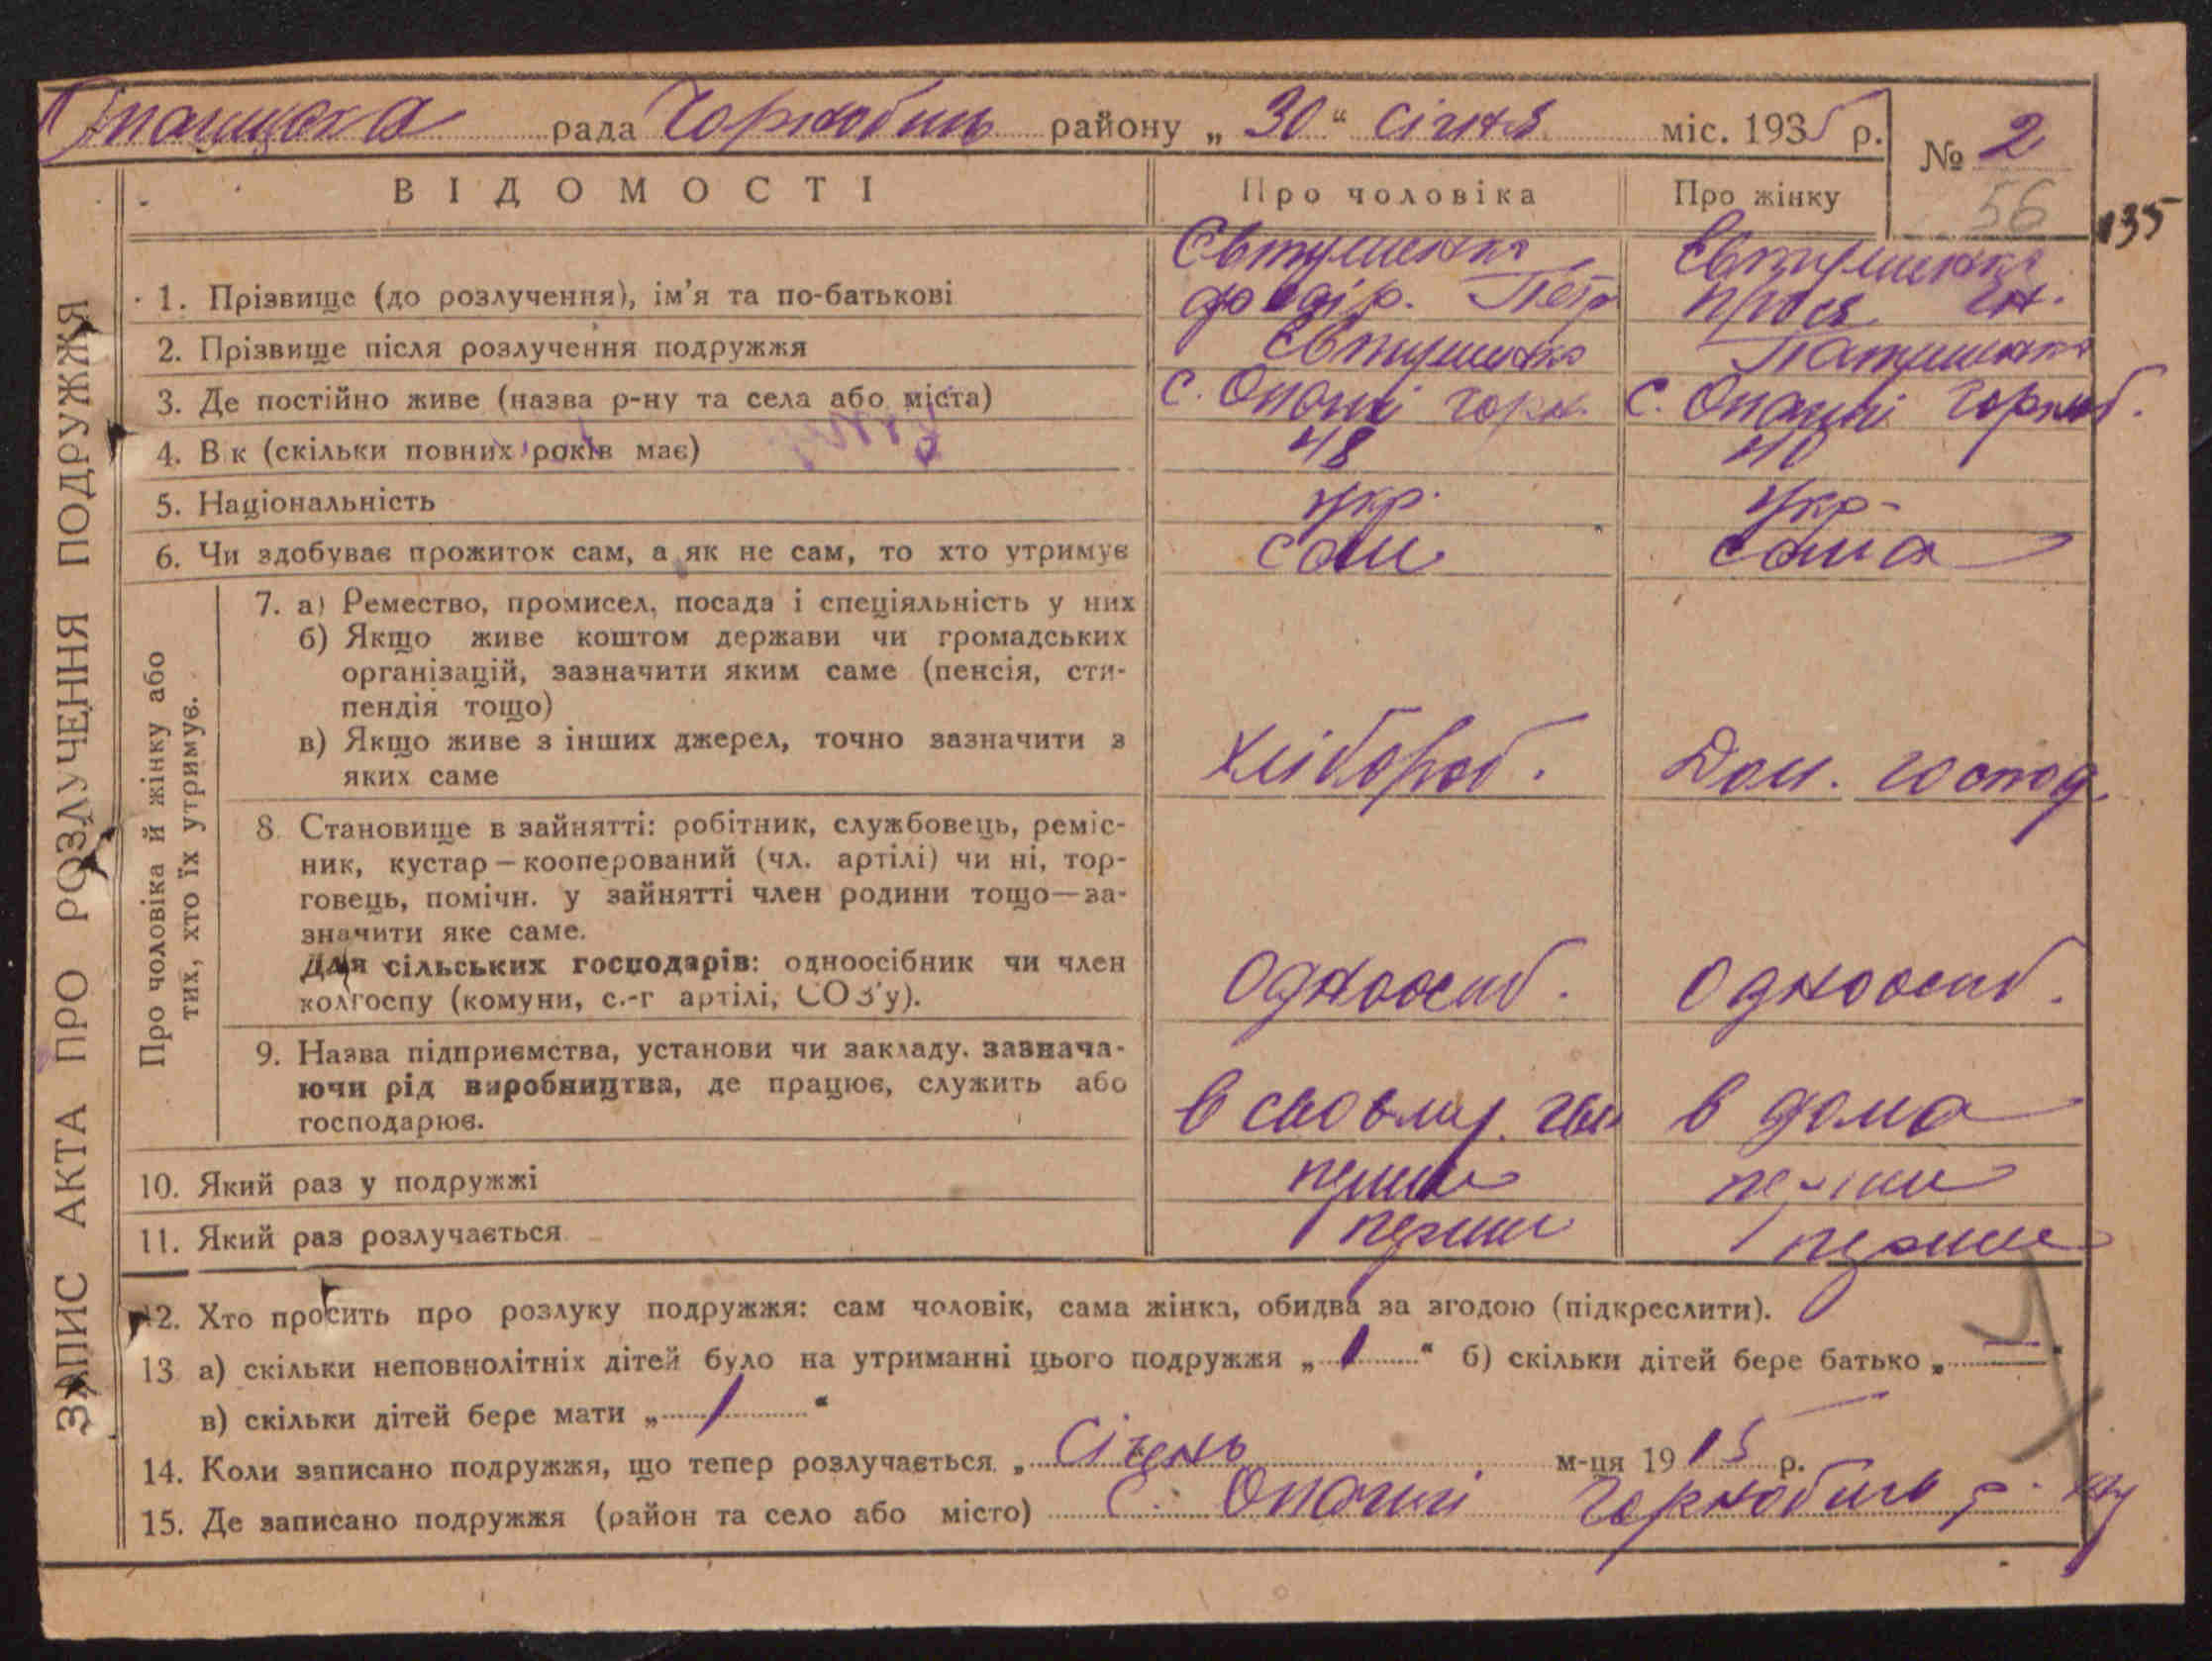 Опачицька рада Чорнобиль району „ 30 “ січня міс. 1935 р.
№ 2
56
135
ВІДОМОСТІ
Про чоловіка
Про жінку
ЗАПИС АКТА ПРО РОЗЛУЧЕННЯ ПОДРУЖЖЯ
1. Прізвище (до розлучення), ім’я та по-батькові
Євтушенко
Петр
Євтушенко
2. Прізвище після розлучення подружжя
Євтушенко
3. Де постійно живе (назва р-ну та села або міста)
С. Опачичі Чорн.
С. Опачичі Чорноб.
4. В к (скільки повних років має)
48
40
5. Національність
укр.
укр-
6. Чи здобуває прожиток сам, а як не сам, то хто утримує
сам
сама
Про чоловіка й жінку або
тих, хто їх утримує.
7. а) Ремество, промисел, посада і спеціяльність у них
б) Якщо живе коштом держави чи громадських
організацій, зазначити яким саме (пенсія, сти-
пендія тощо)
в) Якщо живе з інших джерел, точно зазначити з
яких саме
Хлібороб.
Дом. господ.
8. Становище в зайнятті: робітник, службовець, реміс-
ник, кустар — кооперований (чл. артілі) чи ні, тор-
говець, помічн. у зайнятті член родини тощо—за-
значити яке саме.
Для сільських господарів: одноосібник чи член
колгоспу (комуни, с.-г артілі, СОЗ’у).
Одноосиб.
Одноосиб.
9. Назва підприємства, установи чи закладу. зазнача-
ючи рід виробництва, де працює, служить або
господарює.
в своєму
в дома
10. Який раз у подружжі
перши
перши
11. Який раз розлучається
перши
перши
12. Хто просить про розлуку подружжя: сам чоловік, сама жінка, обидва за згодою (підкреслити).
13 а) скільки неповнолітніх дітей було на утриманні цього подружжя „ 1 “ б) скільки дітей бере батько „ — “
в) скільки дітей бере мати „ 1 “
14. Коли записано подружжя, що тепер розлучається „ Січень м-ця 19 15 р.
15. Де записано подружжя (район та село або місто) С. Опачичі Чорнобиль р-ну